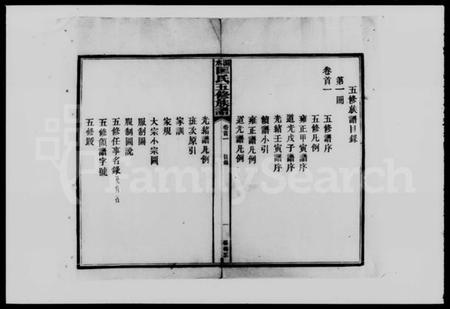 五修族譜目錄
第一冊
卷首一
五修譜序
五修凡例
雍正甲寅譜序
道光戊子譜序
光緒壬寅譜序
續譜小引
雍正譜凡例
道光譜凡例
匡氏五修族譜
卷首一
目錄
一
光緒譜凡例
班次原引
家訓
家規
大宗小宗圖
服制圖
服制圖說
五修任事名錄
五修領譜字號
五修跋
FamilySearch